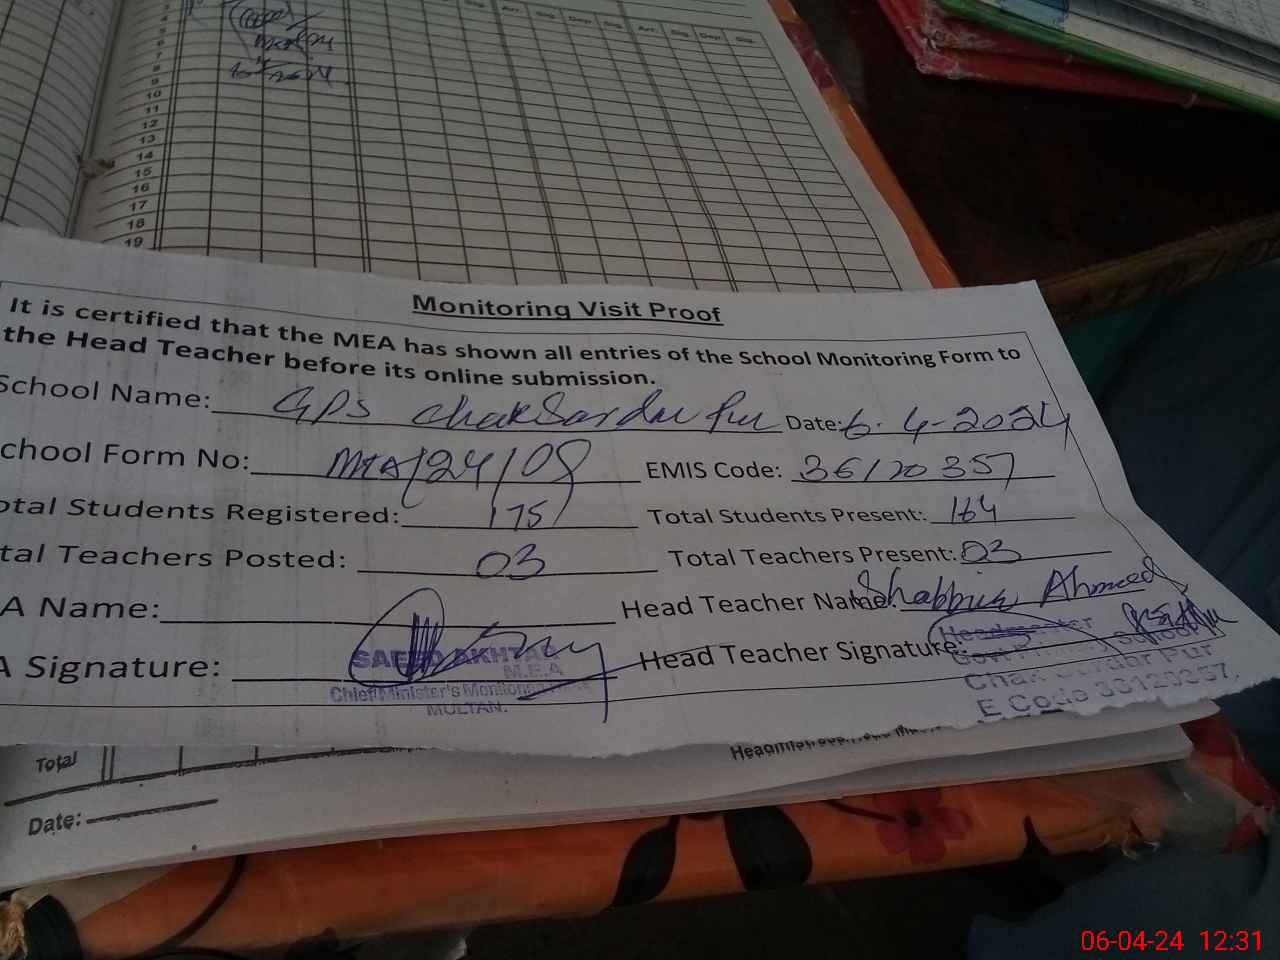 Arr. Sig. Dep. Sig. Arr. Sig. Dep. Sig.
3
4
5
6
7
8
9
10
11
12
13
14
15
16
17
18
19
Monitoring Visit Proof
It is certified that the MEA has shown all entries of the School Monitoring Form to
the Head Teacher before its online submission.
School Name: GPS Chak Sardar Pur Date: 6-4-2024
chool Form No: MEA/24/08 EMIS Code: 36120357
otal Students Registered: 175 Total Students Present: 164
tal Teachers Posted: 03 Total Teachers Present: 03
A Name: Head Teacher Name: Shabbir Ahmeed
A Signature: Head Teacher Signature:
SAEED AKHTAR
M.E.A
Chief Minister's Monitoring
MULTAN.
Headmaster
School
Chak Sardar Pur
E Code 36120357,
Total
Date:
06-04-24 12:31